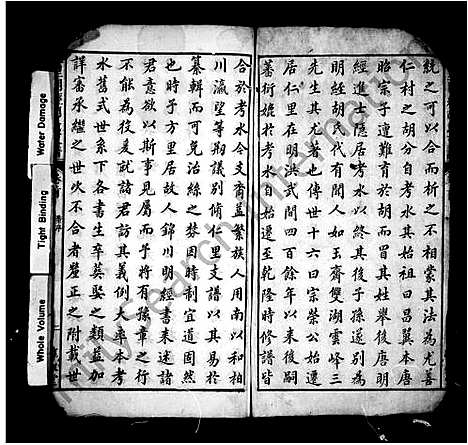 統之可以合而析之不相蒙其法為尤善
仁村之胡分自考水其始祖曰昌翼本唐
昭宗子遭難育於胡而冒其姓舉後唐明
經進士隱居考水以終其後子孫遂別為
明經胡一代有聞人如玉齋雙湖雲峰三
先生其尤著也傳世十六曰宗榮公始遷
居仁里在明洪武間四百餘年以來後嗣
蕃衍始於考水自始遷至乾隆時修譜皆
合於考水今支齋益繁族人用南以和柏
川瀛望等剏議別脩仁里支譜以其易於
纂輯而可免治絲之棼因時制宜道固然
也時予方里居故人錦川明經書來述諸
君意欲以斯事見屬而予將有豫章之行
不能為役爰就諸君訪其義例大率本考
水舊式世系下各書生卒葬娶之類益加
詳審承繼之世次不合者釐正之附載世
Water Damage
Tight Binding
Whole Volume
My
Search
International